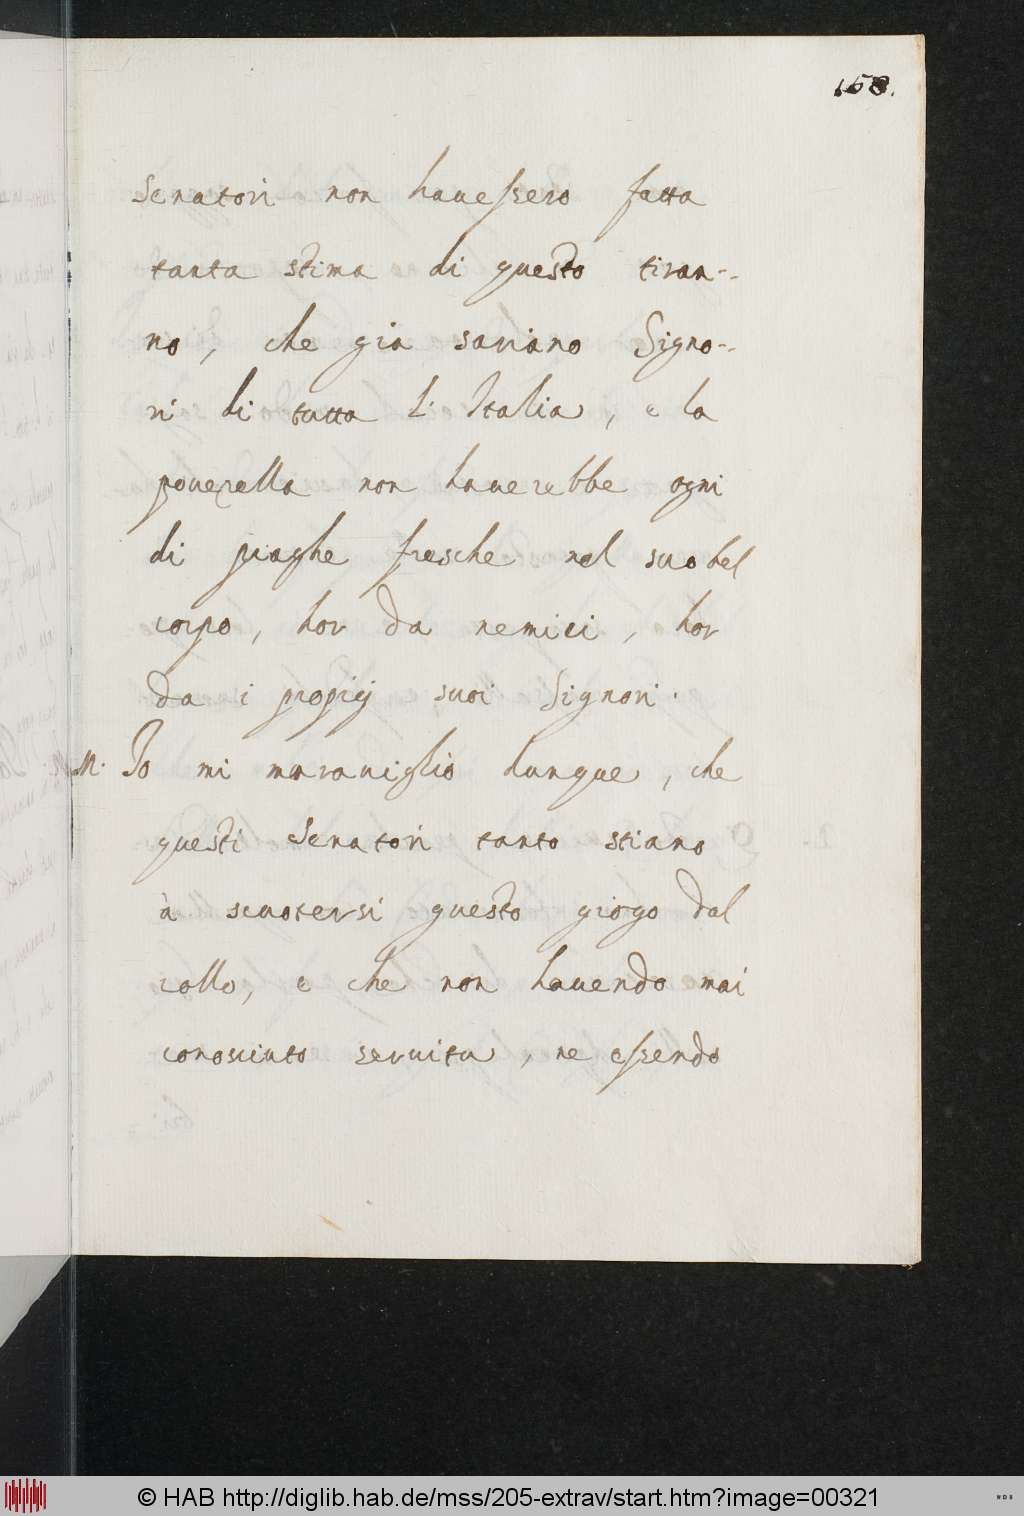 158.
Senatori non hauessero fatta
tanta stima di questo tiran-
no, che gia sariano Signo-
ri di tutta l'Italia, e la
pouerella non hauerebbe ogni
di piaghe fresche nel suo bel
corpo, hor da nemici, hor
da i proprij suoi Signori.
M. Io mi marauiglio dunque, che
questi Senatori tanto stiano
à scuotersi questo giogo dal
collo, e che non hauendo mai
conosciuto seruitu, ne essendo
© HAB http://diglib.hab.de/mss/205-extrav/start.htm?image=00321